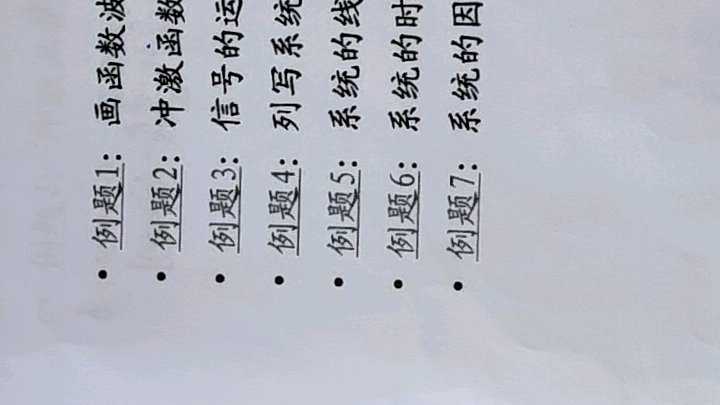 • 例题1: 画函数波
• 例题2: 冲激函数
• 例题3: 信号的运
• 例题4: 列写系统
• 例题5: 系统的线
• 例题6: 系统的时
• 例题7: 系统的因